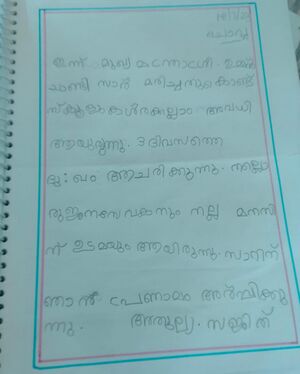 18/7/23
ചൊവ്വ
ഇന്ന് മുഖ്യ മന്ത്രി ഉമ്മ
ചാണ്ടി സാർ മരിച്ചതുകൊണ്ട്
സ്കൂളുകൾക്കെല്ലാം അവധി
ആയുരുന്നു. 3 ദിവസത്തെ
ദു:ഖം ആചരിക്കുന്നു. നല്ലൊ
രുജനസേവകനും നല്ല മനസി
ന് ഉടമയും ആയിരുന്നു. സാറിന്
ഞാൻ പ്രണാമം അർപ്പിക്കു
ന്നു. അതുല്യ. സജിത്